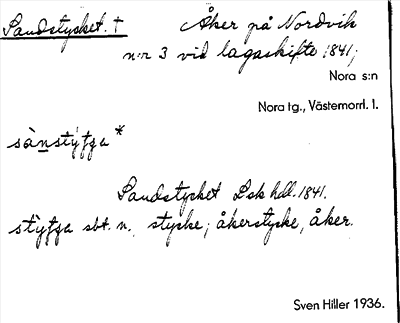 Sandstycket. † Åker på Nordvik
n:r 3 vid lagaskifte 1841;
Nora s:n
Nora tg., Västernorrl. l.
sà̀nstỳt͡ʃa *
Sandstycket Lsk hdl. 1841.
sbt. n. stycke; åkerstycke, åker.
Sven Hiller 1936.